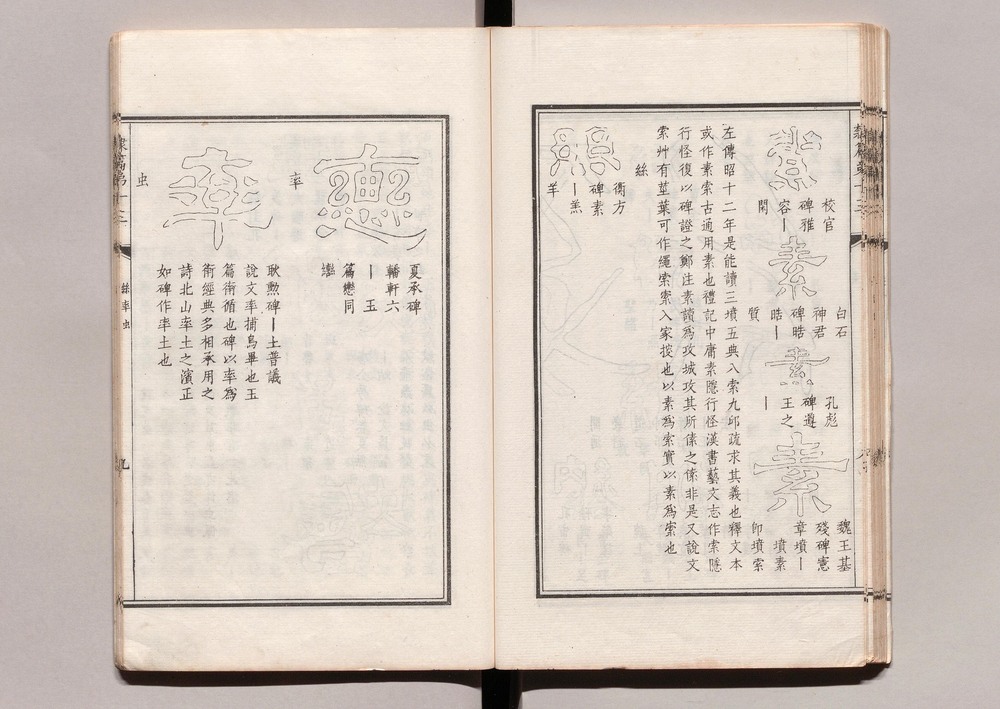 素
校官
碑雅
容｜
閑
素
白石
神君
碑晧
晧｜
質
素
孔彪
碑遵
王之
｜
素
魏王基
殘碑憲
章墳｜
墳素
卽墳索
左傳昭十二年是能讀三墳五典八索九邱疏求其義也釋文本
或作素索古通用素也禮記中庸素隱行怪漢書藝文志作索隱
行怪復以碑證之鄭注素讀爲攻城攻其所傃之傃非是又說文
索艸有莖葉可作繩索索入家挍也以素爲索實以素爲索也
絲
衡方
碑素
｜羔
羊
夏承碑
轓軒六
｜玉
篇戀同
轡
率
率
耿勲碑｜土普議
說文率捕鳥畢也玉
篇衛循也碑以率爲
衛經典多相承用之
詩北山率土之濱正
如碑作率土也
虫
絲率虫
九